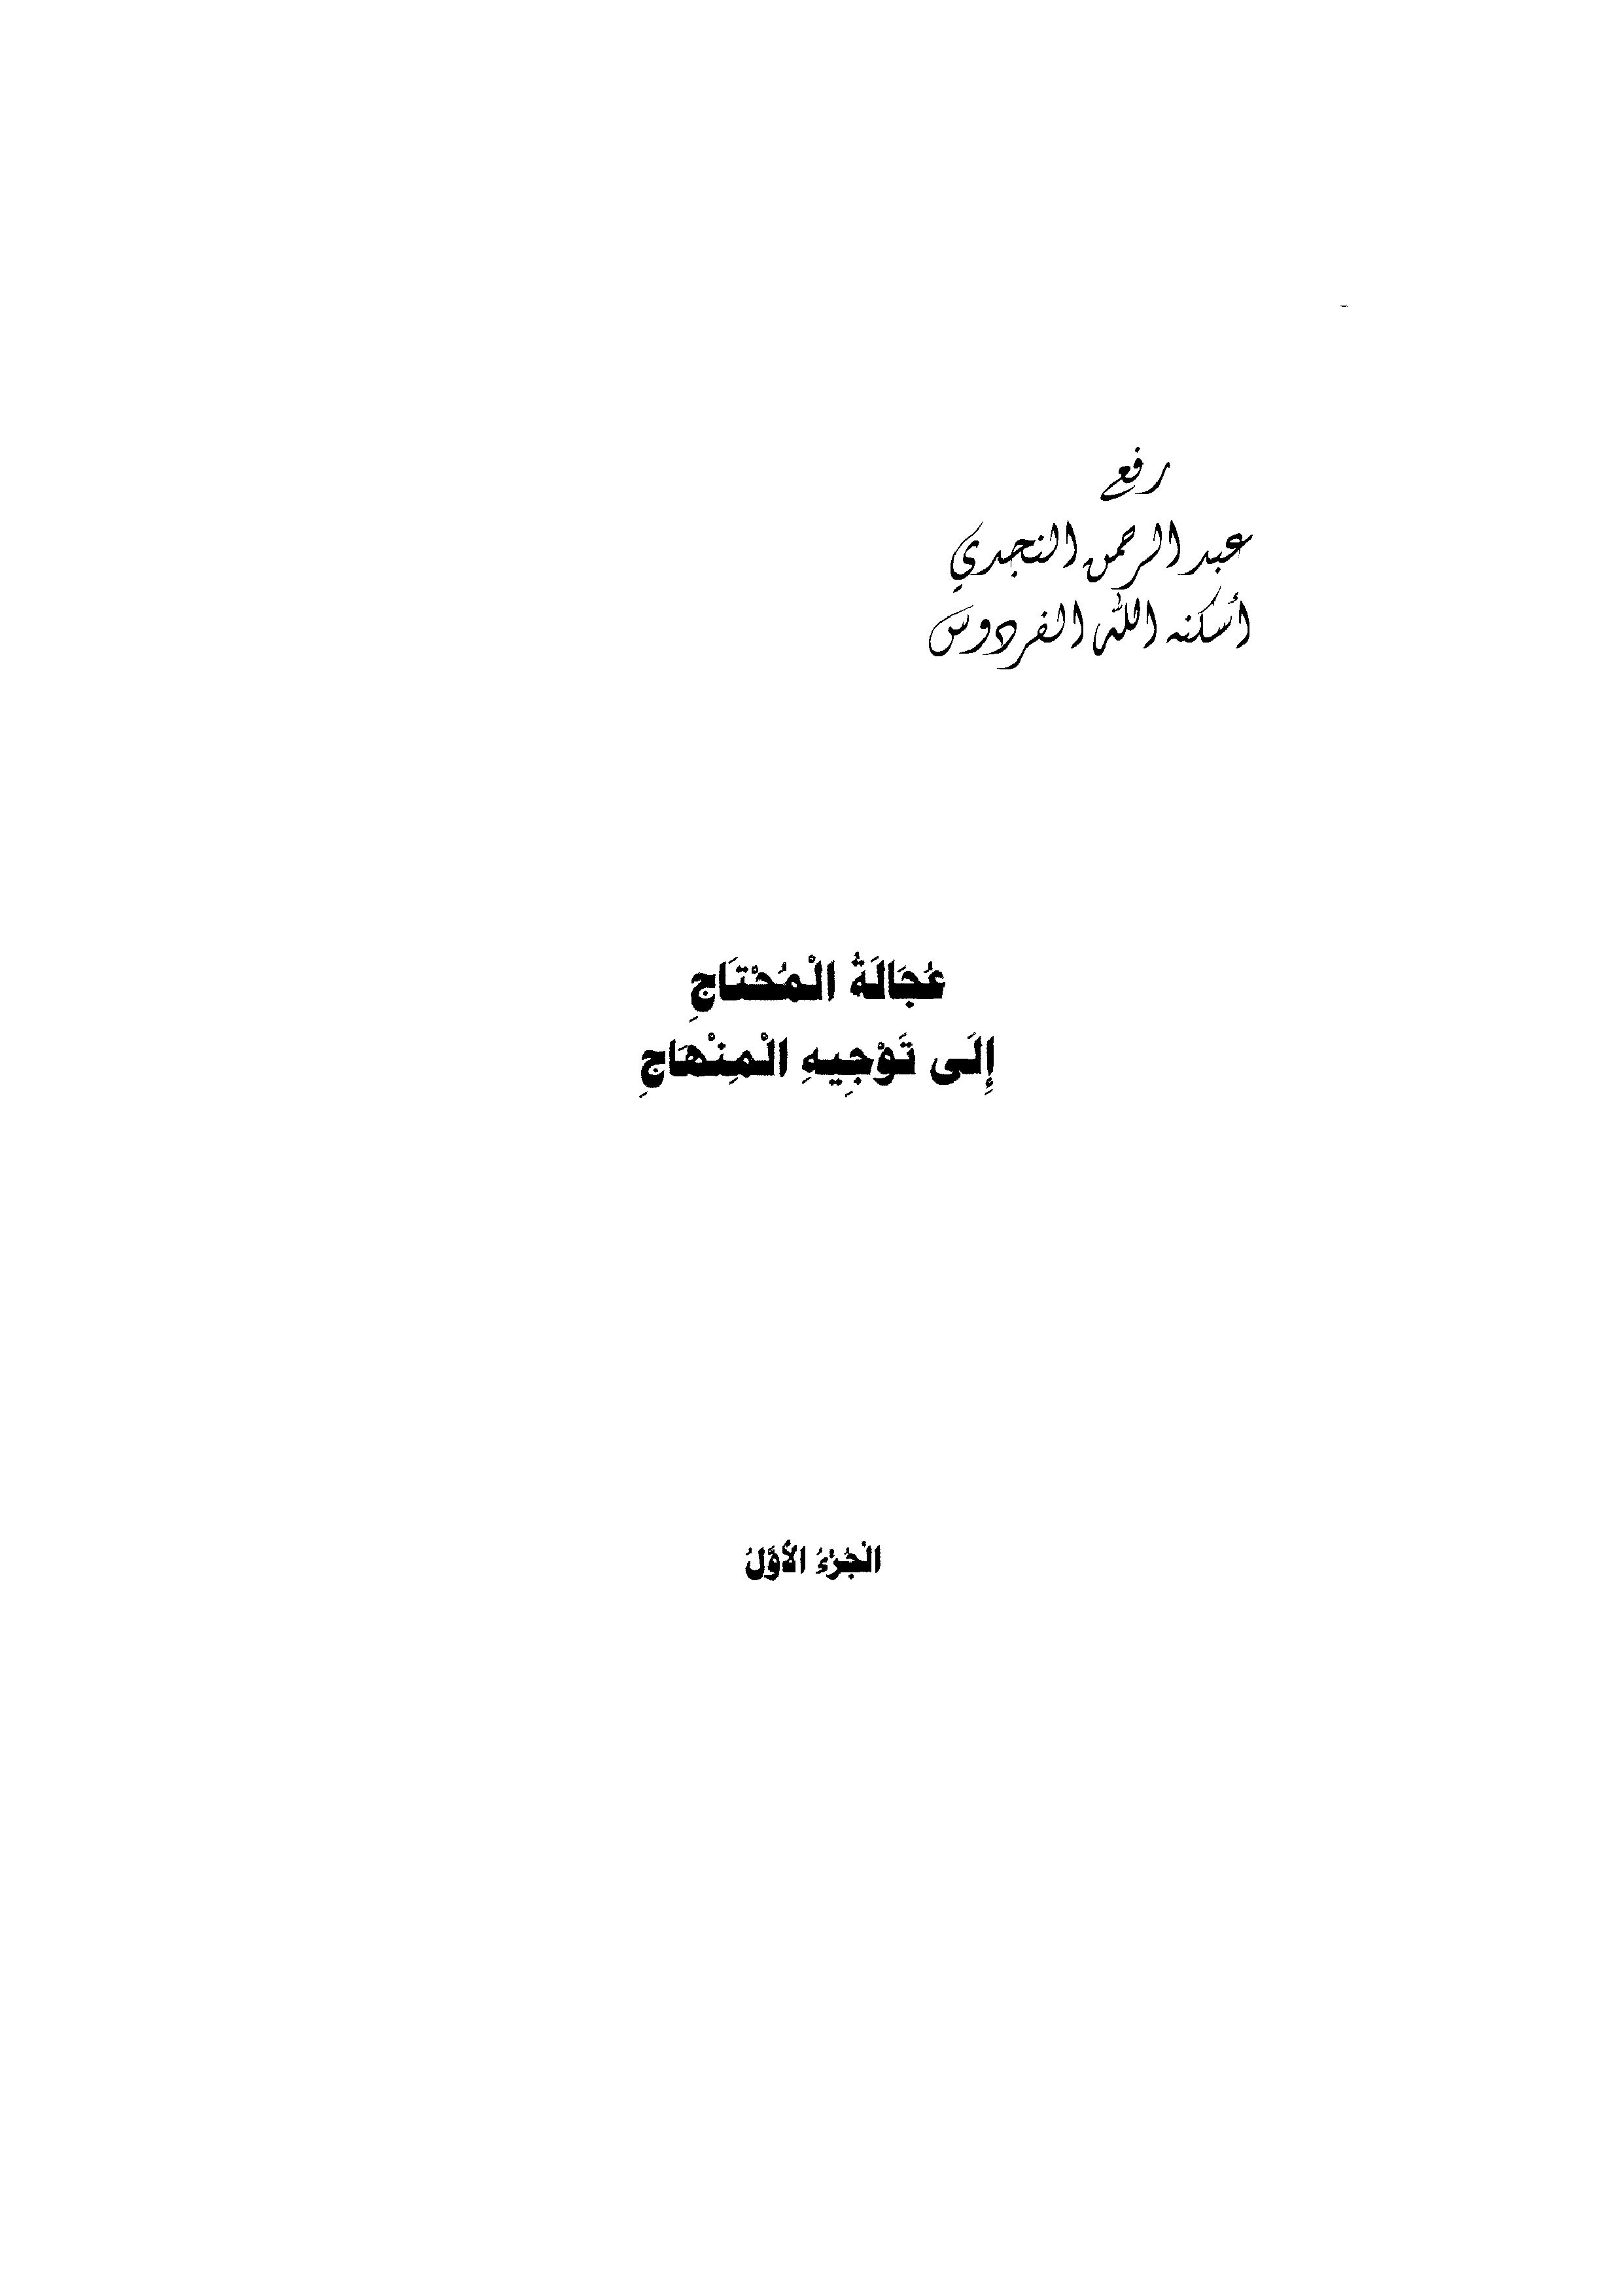 رفع
عبد الرحمن النجدي
أسكنه الله الفردوس
عُجَالَةُ الْمُحْتَاجِ
إِلَى تَوْجِيهِ الْمِنْهَاجِ
الْجُزْءُ الأَوَّلُ